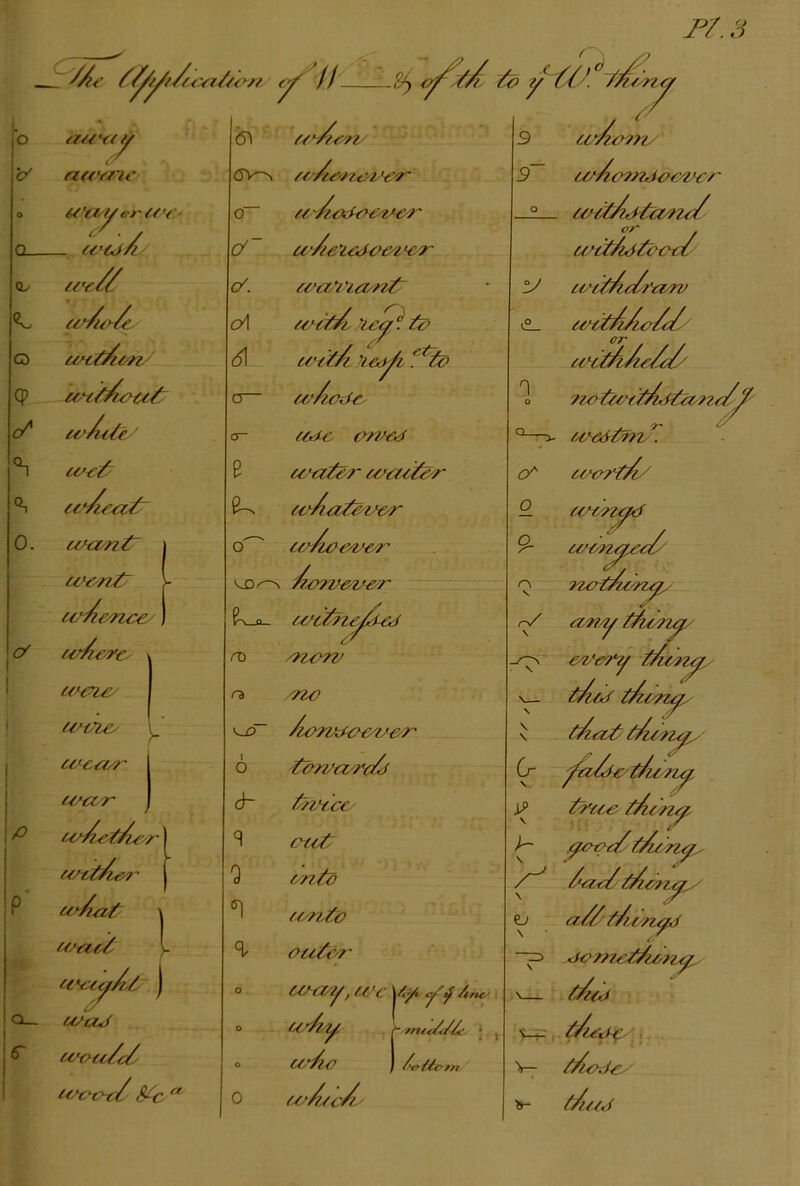 Pl. 3
The Application of W & of th to y W. thing
away
awane
way or we
wish
well
while
within
without
white
wet
wheat
want
went
whence
where
were
wire
wear
war
whether
wither
what
wait
weight
was
would
wood &c
when
whenever
whosoever
wheresoever
warrant
with resp.t to
with resp.t to
whose
use ones
water waiter
whatever
whoever
however
witnesses
now
no
howsoever
towards
twice
out
into
unto
outer
way, we top of y line
why middle
who bottom
which
whom
whomsoever
withstand
or
withstood
withdraw
withhold
or
withheld
notwithstand.g
westm.r
worth
wings
winged
nothing
any thing
every thing
this thing
that thing
false thing
true thing
good thing
bad thing
all things
something
this
these
those
thus